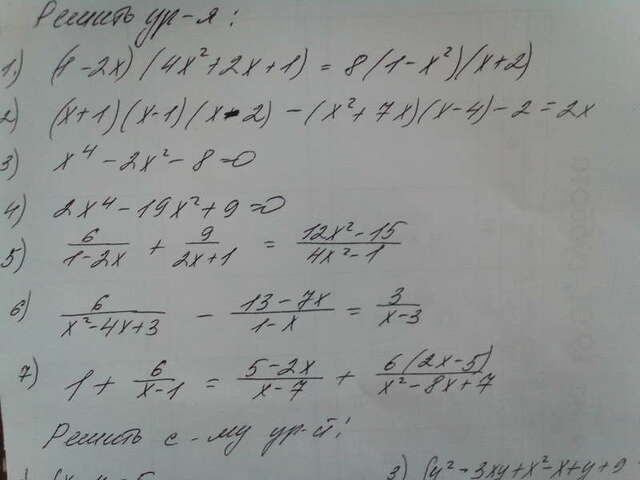 Решить ур-я:
1) (1-2x)(4x²+2x+1) = 8(1-x²)(x+2)
2) (x+1)(x-1)(x-2) - (x²+7x)(x-4) - 2 = 2x
3) x⁴ - 2x² - 8 = 0
4) 2x⁴ - 19x² + 9 = 0
5) 6/(1-2x) + 9/(2x+1) = (12x²-15)/(4x²-1)
6) 6/(x²-4x+3) - (13-7x)/(1-x) = 3/(x-3)
7) 1 + 6/(x-1) = (5-2x)/(x-7) + 6(2x-5)/(x²-8x+7)
Решить с-му ур-й:
2) (y²-3xy+x²-x+y+9